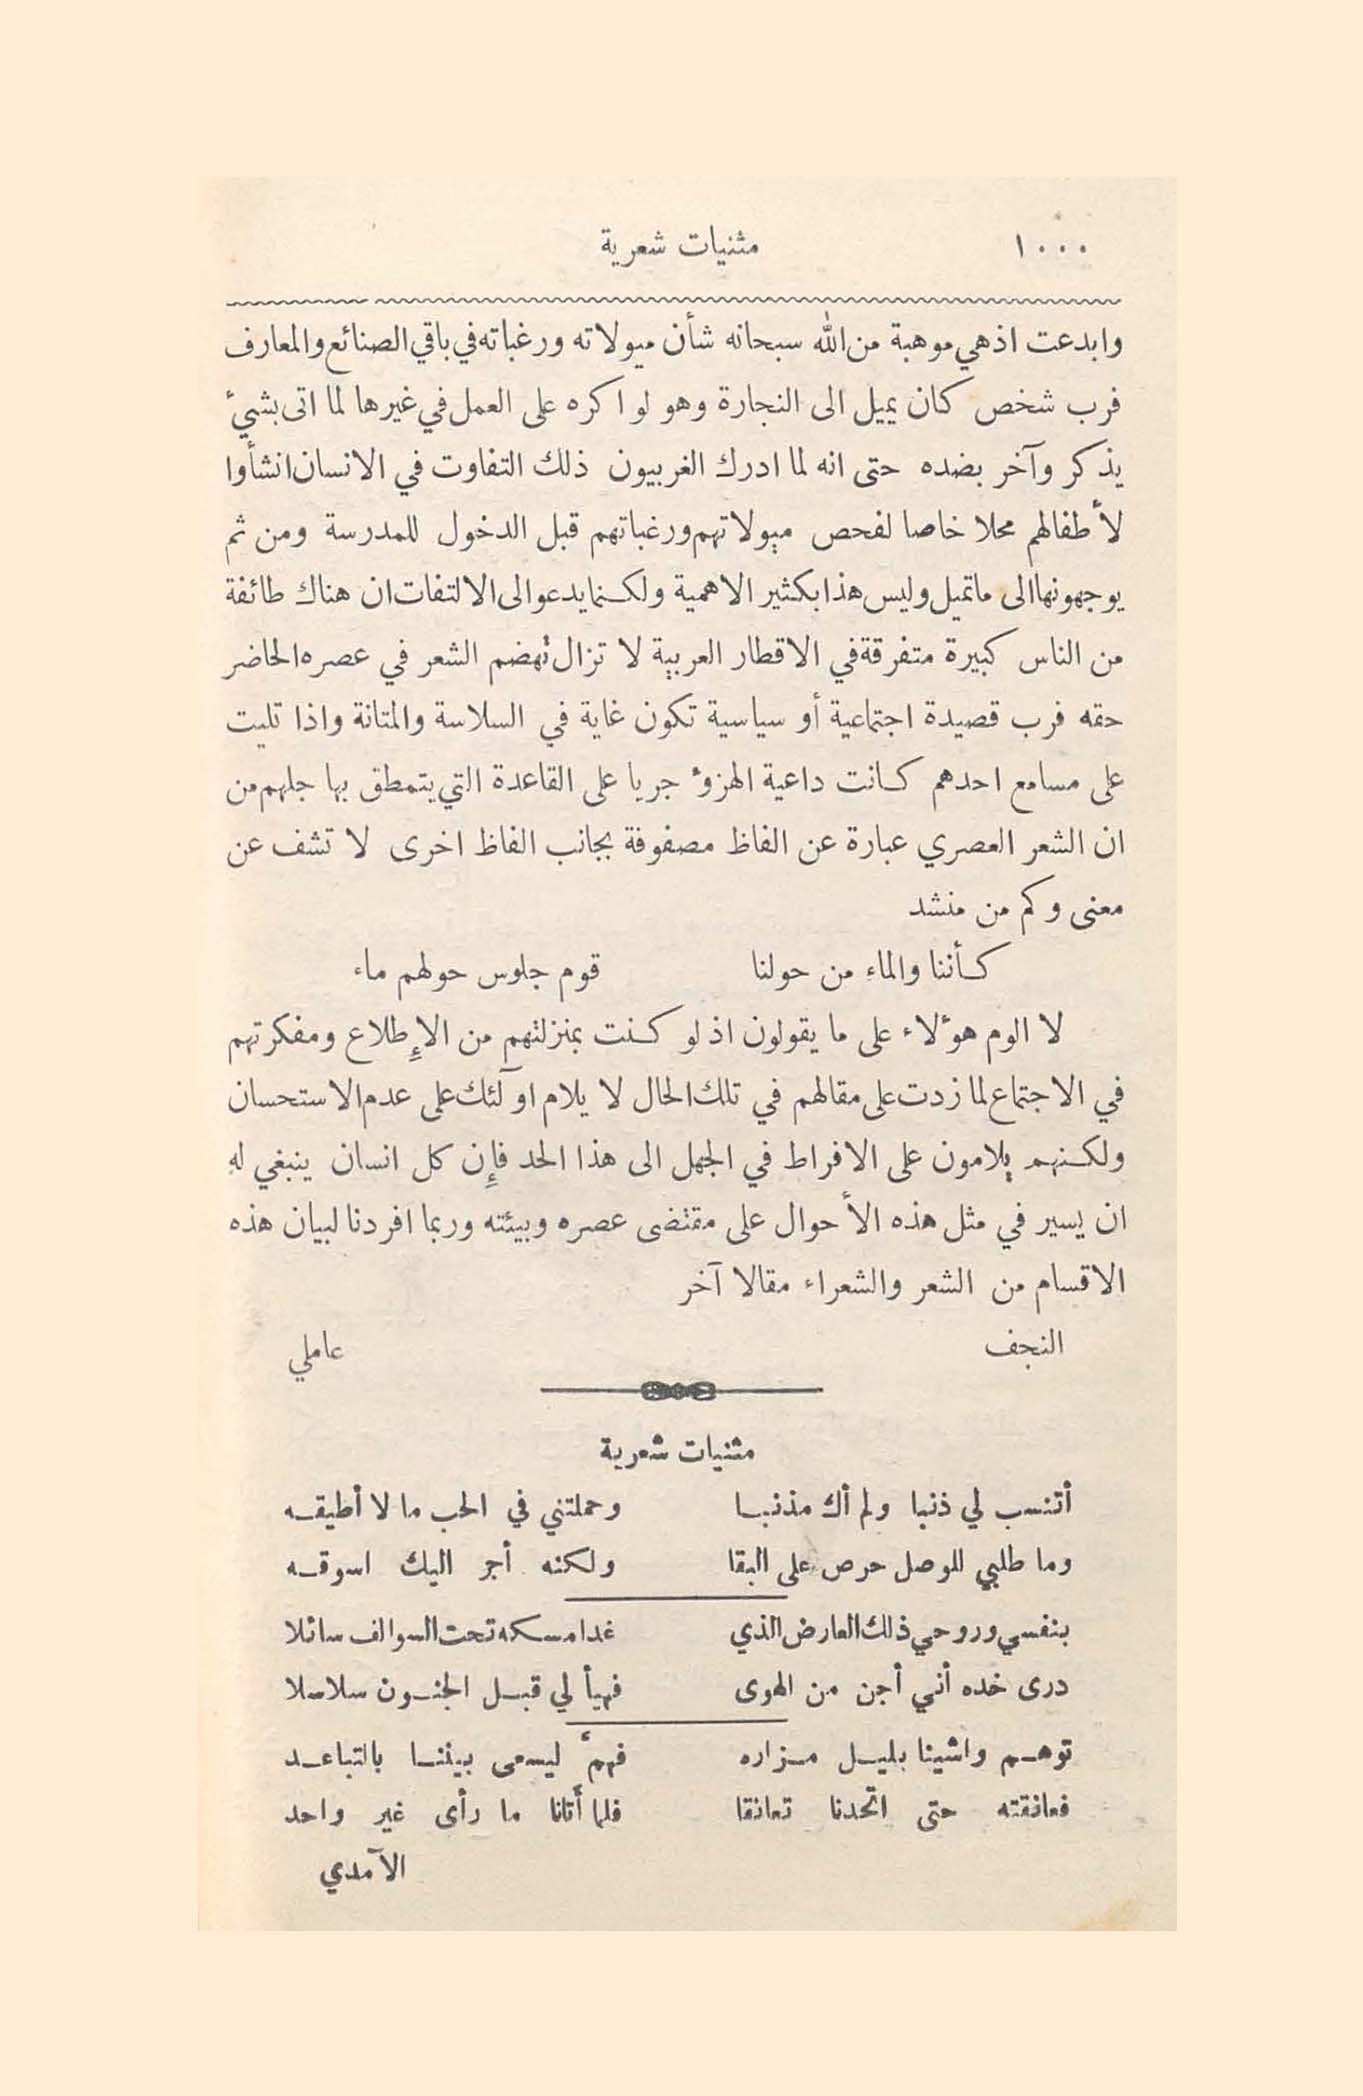 ١٠٠٠ مثنيات شعرية
وابدعت اذهي موهبة من الله سبحانه شأن ميولاته ورغباته في باقي الصنائع والمعارف
فرب شخص كان يميل الى النجارة وهو لو اكره على العمل في غيرها لما اتى بشيء
يذكر وآخر بضده حتى انه لما ادرك الغربيون ذلك التفاوت في الانسان انشأوا
لأطفالهم محلا خاصا لفحص ميولاتهم ورغباتهم قبل الدخول للمدرسة ومن ثم
يوجهونها الى ما تميل وليس هذا بكثير الاهمية ولكنما يدعو الى الالتفات ان هناك طائفة
من الناس كبيرة متفرقة في الاقطار العربية لا تزال تهضم الشعر في عصره الحاضر
حقه فرب قصيدة اجتماعية أو سياسية تكون غاية في السلاسة والمتانة واذا تليت
على مسامع احدهم كانت داعية الهزوء جريا على القاعدة التي يتمطق بها جلهم من
ان الشعر العصري عبارة عن الفاظ مصفوفة بجانب الفاظ اخرى لا تشف عن
معنى وكم من منشد
كأننا والماء من حولنا قوم جلوس حولهم ماء
لا الوم هؤلاء على ما يقولون اذ لو كنت بمنزلتهم من الإطلاع ومفكرتهم
في الاجتماع لما زدت على مقالهم في تلك الحال لا يلام اولئك على عدم الاستحسان
ولكنهم يلامون على الافراط في الجهل الى هذا الحد فإن كل انسان ينبغي له
ان يسير في مثل هذه الأحوال على مقتضى عصره وبيئته وربما افردنا لبيان هذه
الاقسام من الشعر والشعراء مقالا آخر
النجف عاملي
مثنيات شعرية
أتنسب لي ذنبا ولم أك مذنبا وحملتني في الحب ما لا أطيقه
وما طلبي للوصل حرص على البقا ولكنه أجر اليك اسوقه
بنفسي وروحي ذلك العارض الذي غدا مسكه تحت السوالف سائلا
درى خده أني أجن من الهوى فهيأ لي قبل الجنون سلاسلا
توهم واشينا بليل مزاره فهمَّ ليسعى بيننا بالتباعد
فعانقته حتى اتحدنا تعانقا فلما أتانا ما رأى غير واحد
الآمدي